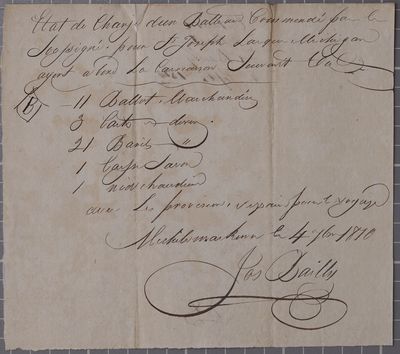 Etat de Charge d'un Batteau Commendé par le
Sousigné, pour St Joseph Lac Michigan
ayant a bord La Cargaison Suivante
B 11 Ballots Marchandises
3
21 Barils "
1 Savon
1
avec les provisions pour le voyage
Michilimackinac le 4 1810
Jos Bailly